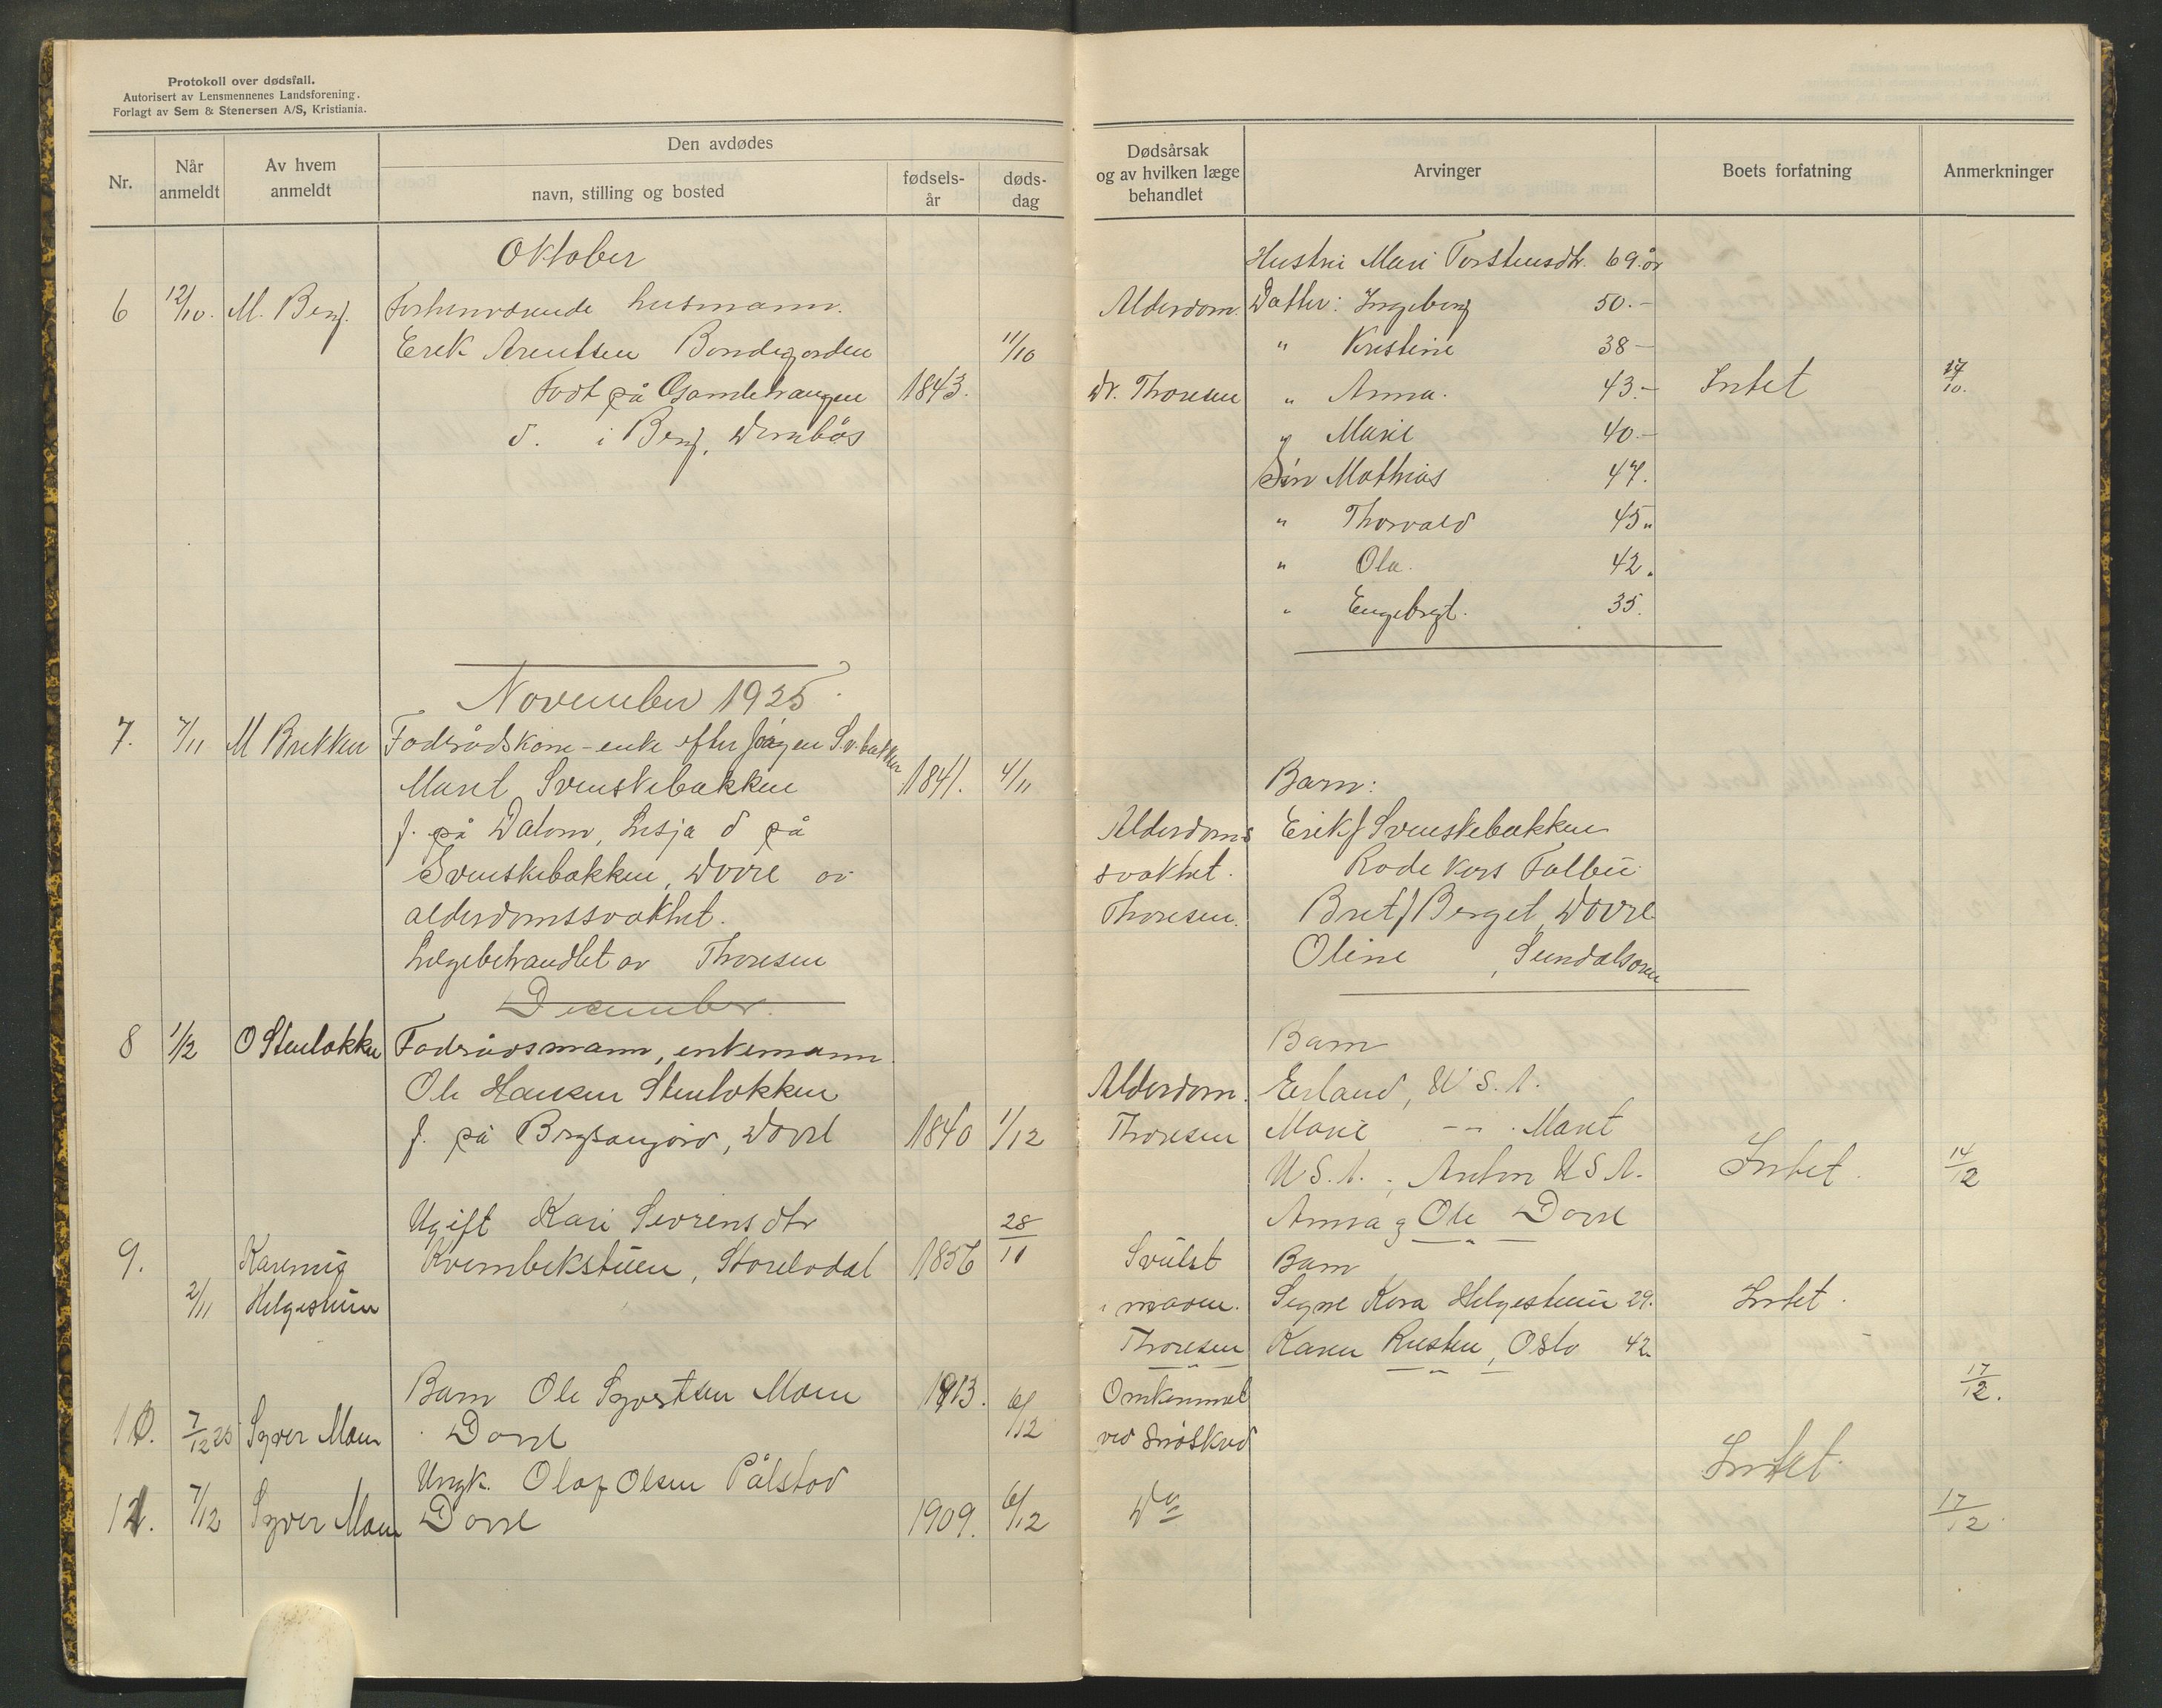 Protokoll over dødsfall.
Autorisert av Lensmennenes Landsforening.
Forlagt av Sem & Stenersen A/S, Kristiania.
Nr.
Når anmeldt
Av hvem anmeldt
Den avdødes
navn, stilling og bosted
fødsels-år
døds-dag
Dødsårsak og av hvilken læge behandlet
Arvinger
Boets forfatning
Anmerkninger
Oktober
6 12/10. M. Berg. Forhenværende husmann.
Erik Arentsen Bondegorden 11/10
Født på Gamlehaugen 1843.
d. i Berg, Dombås
Alderdom.
Dr. Thoresen
Hustru Mari Torstensdtr. 69 år
Datter: Ingeborg 50.-
" Kristine 38-
" Anna. 43.-
" Marie 40.-
Søn Mathias 47.
" Thorvald 45"
" Ola. 42.
" Engebrgt. 35.
Intet
17/10.
November 1925.
7. 7/11 M Brekken Foderådskone - enke efter Jørgen Sv.bakken
Marit Svenskebakken 1841. 4/11
f. på Dalom, Lesja d på
Svenskebakken, Dovre av
alderdomssvakhet.
Lægebehandlet av Thoresen
Alderdoms
svakhet.
Thoresen.
Barn:
Erik J Svenskebakken
Røde Kors Follbu
Brit J Berget, Dovre
Oline, Sundalsøren
December.
8 1/12 O Stenløkken Foderådsmann, enkemann
Ole Hansen Stenløkken
f. på Brysangjord, Dovre 1840 1/12
Alderdom.
Thoresen
Barn
Erland, U.S.A.
Marie -"- . Marit
U.S.A. ; Anton U S A.
Anna og Ole Dovre
Intet.
14/12
Ugift Kari Seviensdtr
9. 2/11 Karenus Helgestuen
Kvembekstuen, Storelvdal 1856 28/11
Svulst
i maven.
Thoresen
Barn
Signe Kora Helgestuen 29.
Karen Rusten, Oslo 42
Intet.
17/12.
Barn Ole Syvertsen Moen 1913. 6/12
10. 7/12 25 Syver Moen Dovre
Omkommet
ved snøskred
Intet.
Ungk. Olaf Olsen Pålstad
11. 7/12 Syver Moen Dovre 1909. 6/12
Do
17/12.